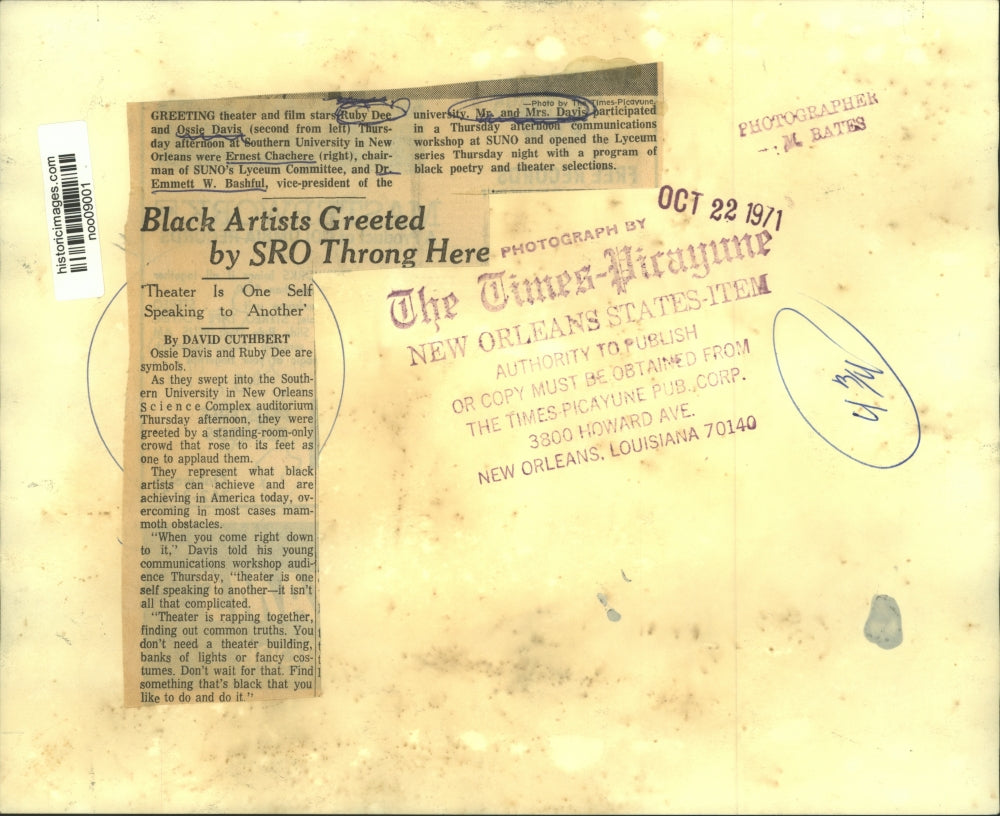 —Photo by The Times-Picayune.
GREETING theater and film stars Ruby Dee
and Ossie Davis (second from left) Thurs-
day afternoon at Southern University in New
Orleans were Ernest Chachere (right), chair-
man of SUNO's Lyceum Committee, and Dr.
Emmett W. Bashful, vice-president of the
university. Mr. and Mrs. Davis participated
in a Thursday afternoon communications
workshop at SUNO and opened the Lyceum
series Thursday night with a program of
black poetry and theater selections.
Black Artists Greeted
by SRO Throng Here
'Theater Is One Self
Speaking to Another'
By DAVID CUTHBERT
Ossie Davis and Ruby Dee are
symbols.
As they swept into the South-
ern University in New Orleans
Science Complex auditorium
Thursday afternoon, they were
greeted by a standing-room-only
crowd that rose to its feet as
one to applaud them.
They represent what black
artists can achieve and are
achieving in America today, ov-
ercoming in most cases mam-
moth obstacles.
"When you come right down
to it," Davis told his young
communications workshop audi-
ence Thursday, "theater is one
self speaking to another—it isn't
all that complicated.
"Theater is rapping together,
finding out common truths. You
don't need a theater building,
banks of lights or fancy cos-
tumes. Don't wait for that. Find
something that's black that you
like to do and do it."
historicimages.com
noo09001
PHOTOGRAPHER
M. BATES
OCT 22 1971
PHOTOGRAPH BY
The Times-Picayune
NEW ORLEANS STATES-ITEM
AUTHORITY TO PUBLISH
OR COPY MUST BE OBTAINED FROM
THE TIMES-PICAYUNE PUB. CORP.
3800 HOWARD AVE.
NEW ORLEANS, LOUISIANA 70140